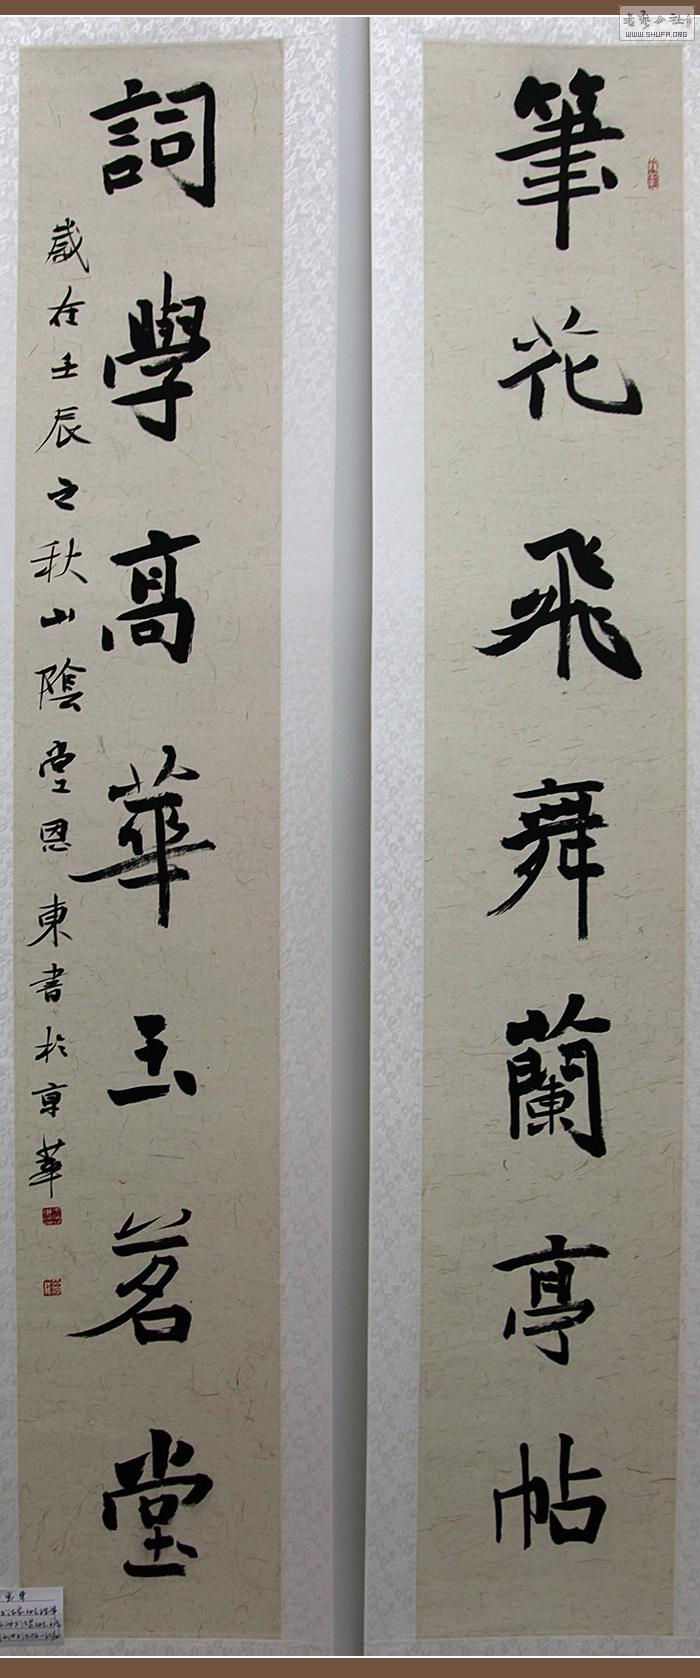 筆花飛舞蘭亭帖
詞學高華玉茗堂
歲在壬辰之秋山陰堂恩東書於京華
WWW.SHUFA.ORG